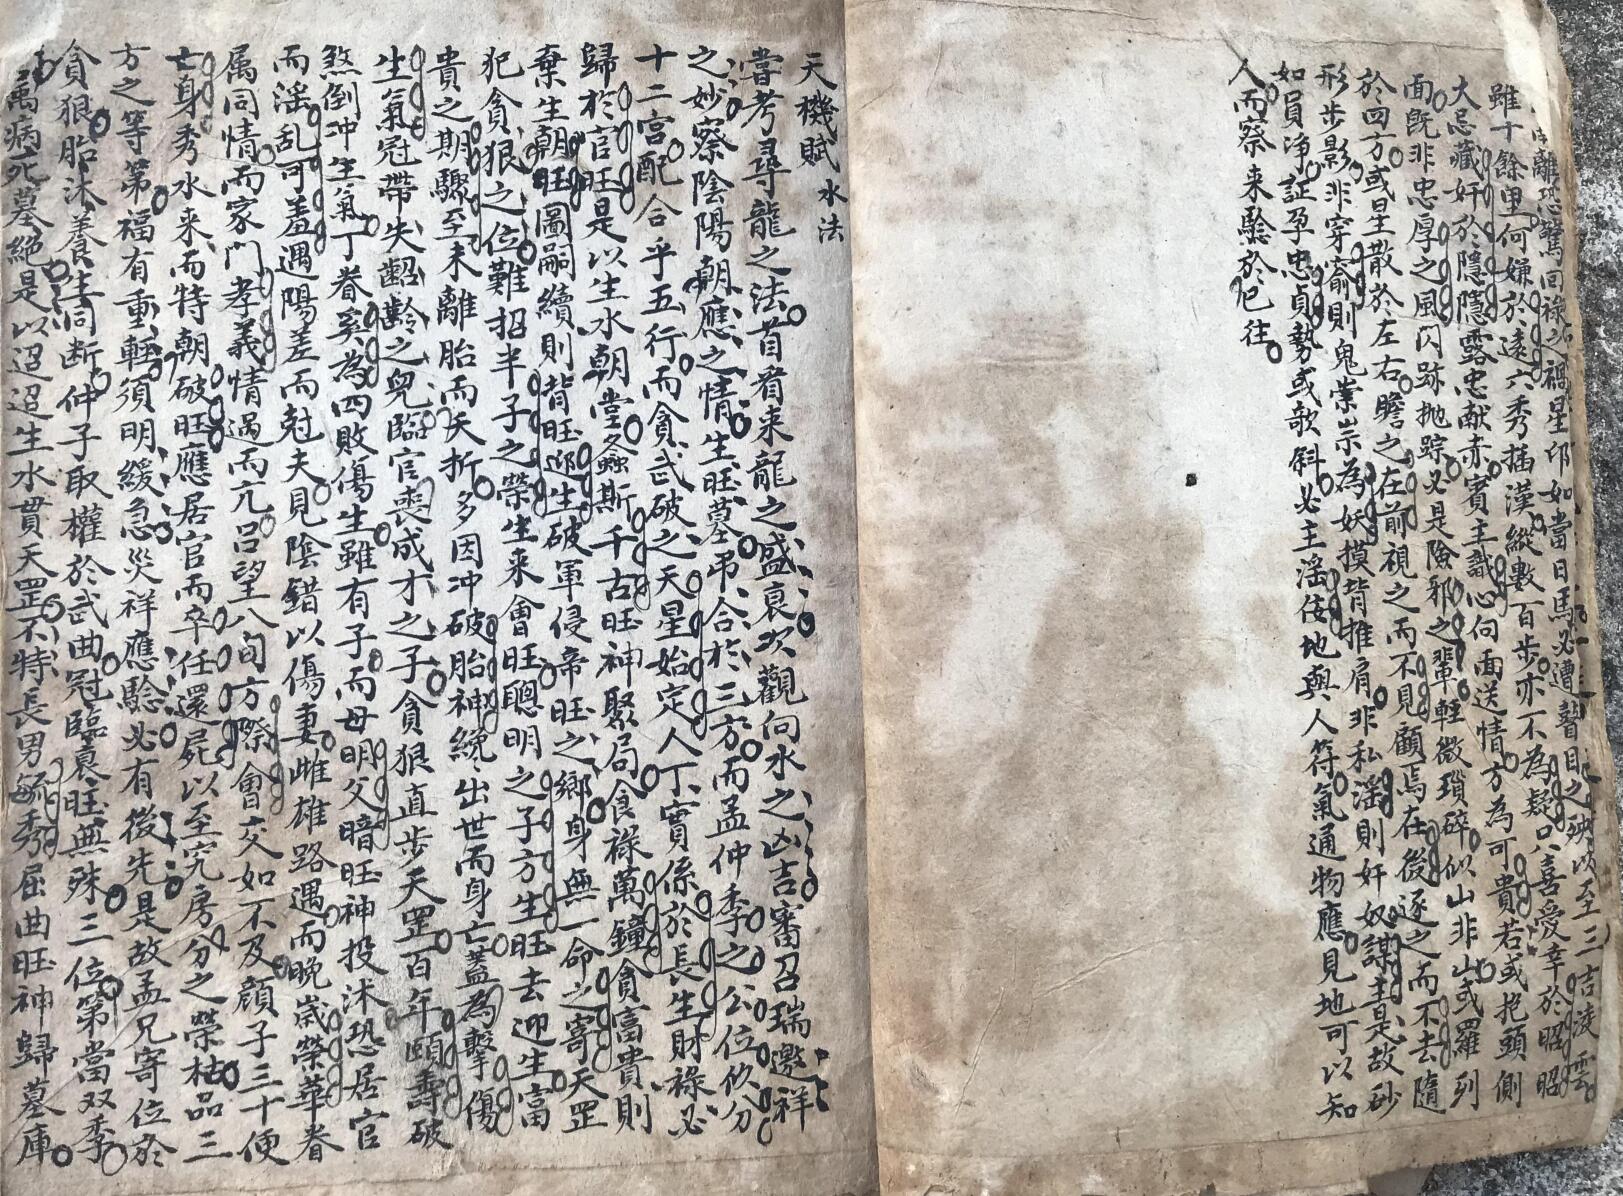 離恐驚回祿之禍星印如當日馬必遭瞽目之殃以至三吉凌雲
雖十餘里何嫌於遠六秀插漢縱數百步亦不為疑只喜愛幸於昭昭
大忌藏奸於隱隱露忠献赤賓主識心向面送情方為可貴若或抱頭側
面既非忠厚之風闪跡抛踪必是險邪之輩輕微瑣碎似山非山或羅列
於四方或星散於左右瞻之在前視之而不見顧焉在後逐之而不去隨
形步影非穿窬則鬼祟為妖摸背推肩非私淫則奸奴謀主是故砂
如員淨証孕忠貞勢或欹斜必主淫伎地與人符氣通物應見地可以知
人而察來驗於已往
天機賦 水法
嘗考尋龍之法首看来龍之盛衰次觀向水之凶吉審召瑞邀祥
之妙察陰陽朝應之情生旺墓帝合於三方而孟仲季之公位攸分
十二宫配合乎五行而貪武破之天星始定人丁實係於長生財祿必
歸於官旺是以生水朝堂螽斯千古旺神聚局食祿萬鐘貪富貴則
棄生朝旺圖嗣續則背旺迎生破軍侵帝旺之鄉身無一命之寄天罡
犯貪狼之位難招半子之榮生来會旺聰明之子方生旺去迎生富
貴之期驟至未離胎而夭折多因冲破胎神纔出世而身亡蓋為擊傷
生氣冠帶失齠齡之兒臨官喪成才之子貪狼直步天罡百年頤壽破
煞倒冲生氣丁眷奚為四敗傷生雖有子而母明父暗旺神投沐恐居官
而淫乱可羞遇陽差而尅夫見陰錯以傷妻雌雄路遇而晚歲榮華眷
属同情而家門孝義情遇而亢呂望八旬方際會交如不及顔子三十便
亡身秀水来而特朝破旺應居官而卒任還屍以至究房分之榮枯品三
方之等第福有重輕須明緩急災祥應驗必有後先是故孟兄寄位於
貪狼胎沐養生同断仲子取權於武曲冠臨衰旺無殊三位第當双季
萬病死墓絕是以迢迢生水貫天罡不特長男毓秀屈曲旺神歸墓庫